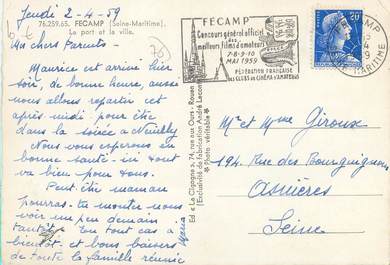 Jeudi 2-4-59
76.259.65. FECAMP (Seine-Maritime).
Le port et la ville.
Mes chers Parents
Maurice est arrivé hier
soir, de bonne heure, aussi
nous allons repartir cet
après midi pour être
dans la soirée à Neuilly
Nous vous espérons en
bonne santé - ici tout
va bien pour tous.
Peut être maman
pourras-tu monter nous
voir un peu demain
tantôt, En tout cas à
bientôt, et bons baisers
de toute la famille réunie
Ed " La Cigogne », 74, rue aux Ours - Rouen
(Exclusivité de Fabrication André Leconte)
* Photo véritable *
FÉCAMP
Concours général officiel des
meilleurs films d'amateurs
7-8-9-10
MAI 1959
FÉDÉRATION FRANÇAISE
DES CLUBS DE CINÉMA D'AMATEURS
20F
FECAMP
SEINE MARITIME
Mr et Mme Giroux
194 Rue des Bourguignons
Asnières
Seine